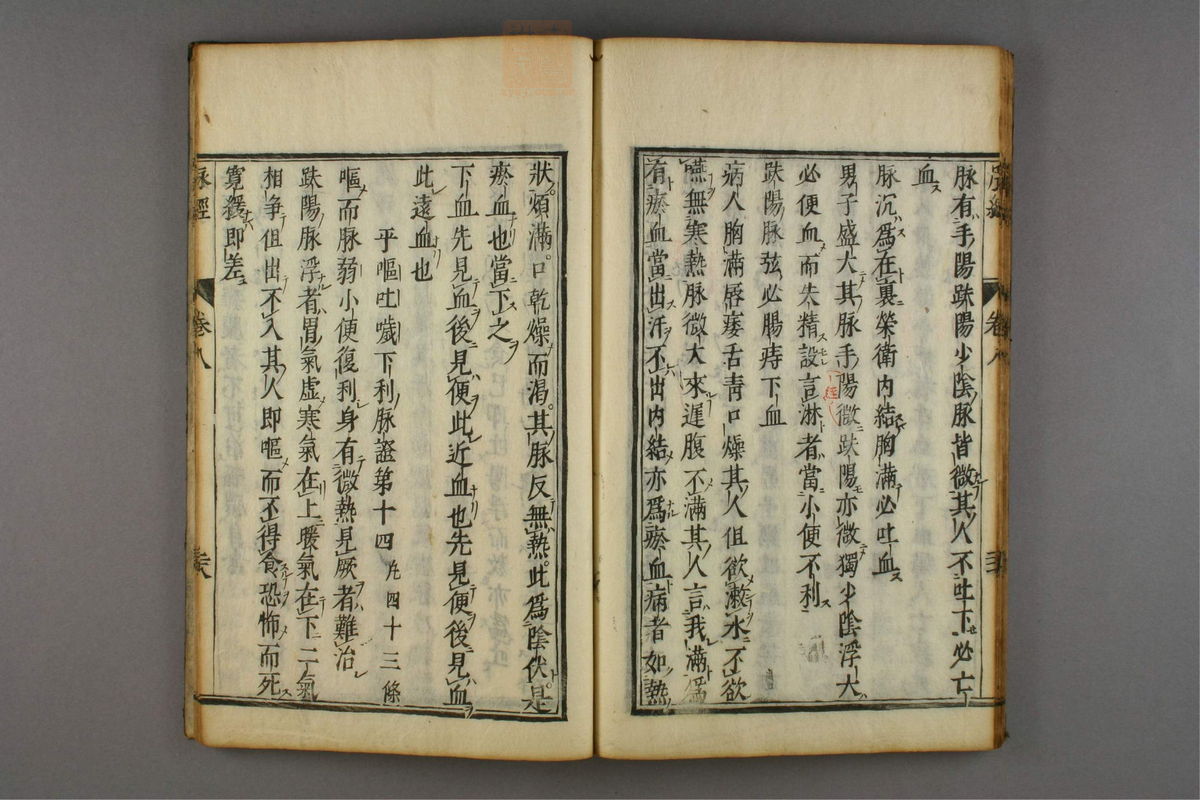 脉有手陽趺陽少陰脉皆微其人不吐下必亡
血
脉沉爲在裏榮衛内結胸滿必吐血
男子盛大其脉手陽微趺陽亦微獨少陰浮大
必便血而失精設言淋者當小便不利
趺陽脉弦必腸痔下血
病人胸滿唇痿舌青口燥其人但欲漱水不欲
嚥無寒熱脉微大來遲腹不滿其人言我滿爲
有瘀血當出汗不出内結亦爲瘀血病者如熱
狀煩滿口乾燥而渴其脉反無熱此爲陰伏是
瘀血也當下之
下血先見血後見便此近血也先見便後見血
此遠血也
平嘔吐噦下利脉證第十四 凡四十三條
嘔而脉弱小便復利身有微熱見厥者難治
趺陽脉浮者胃氣虛寒氣在上暖氣在下二氣
相爭但出不入其人即嘔而不得食恐怖而死
寬緩即差
脉經 卷八